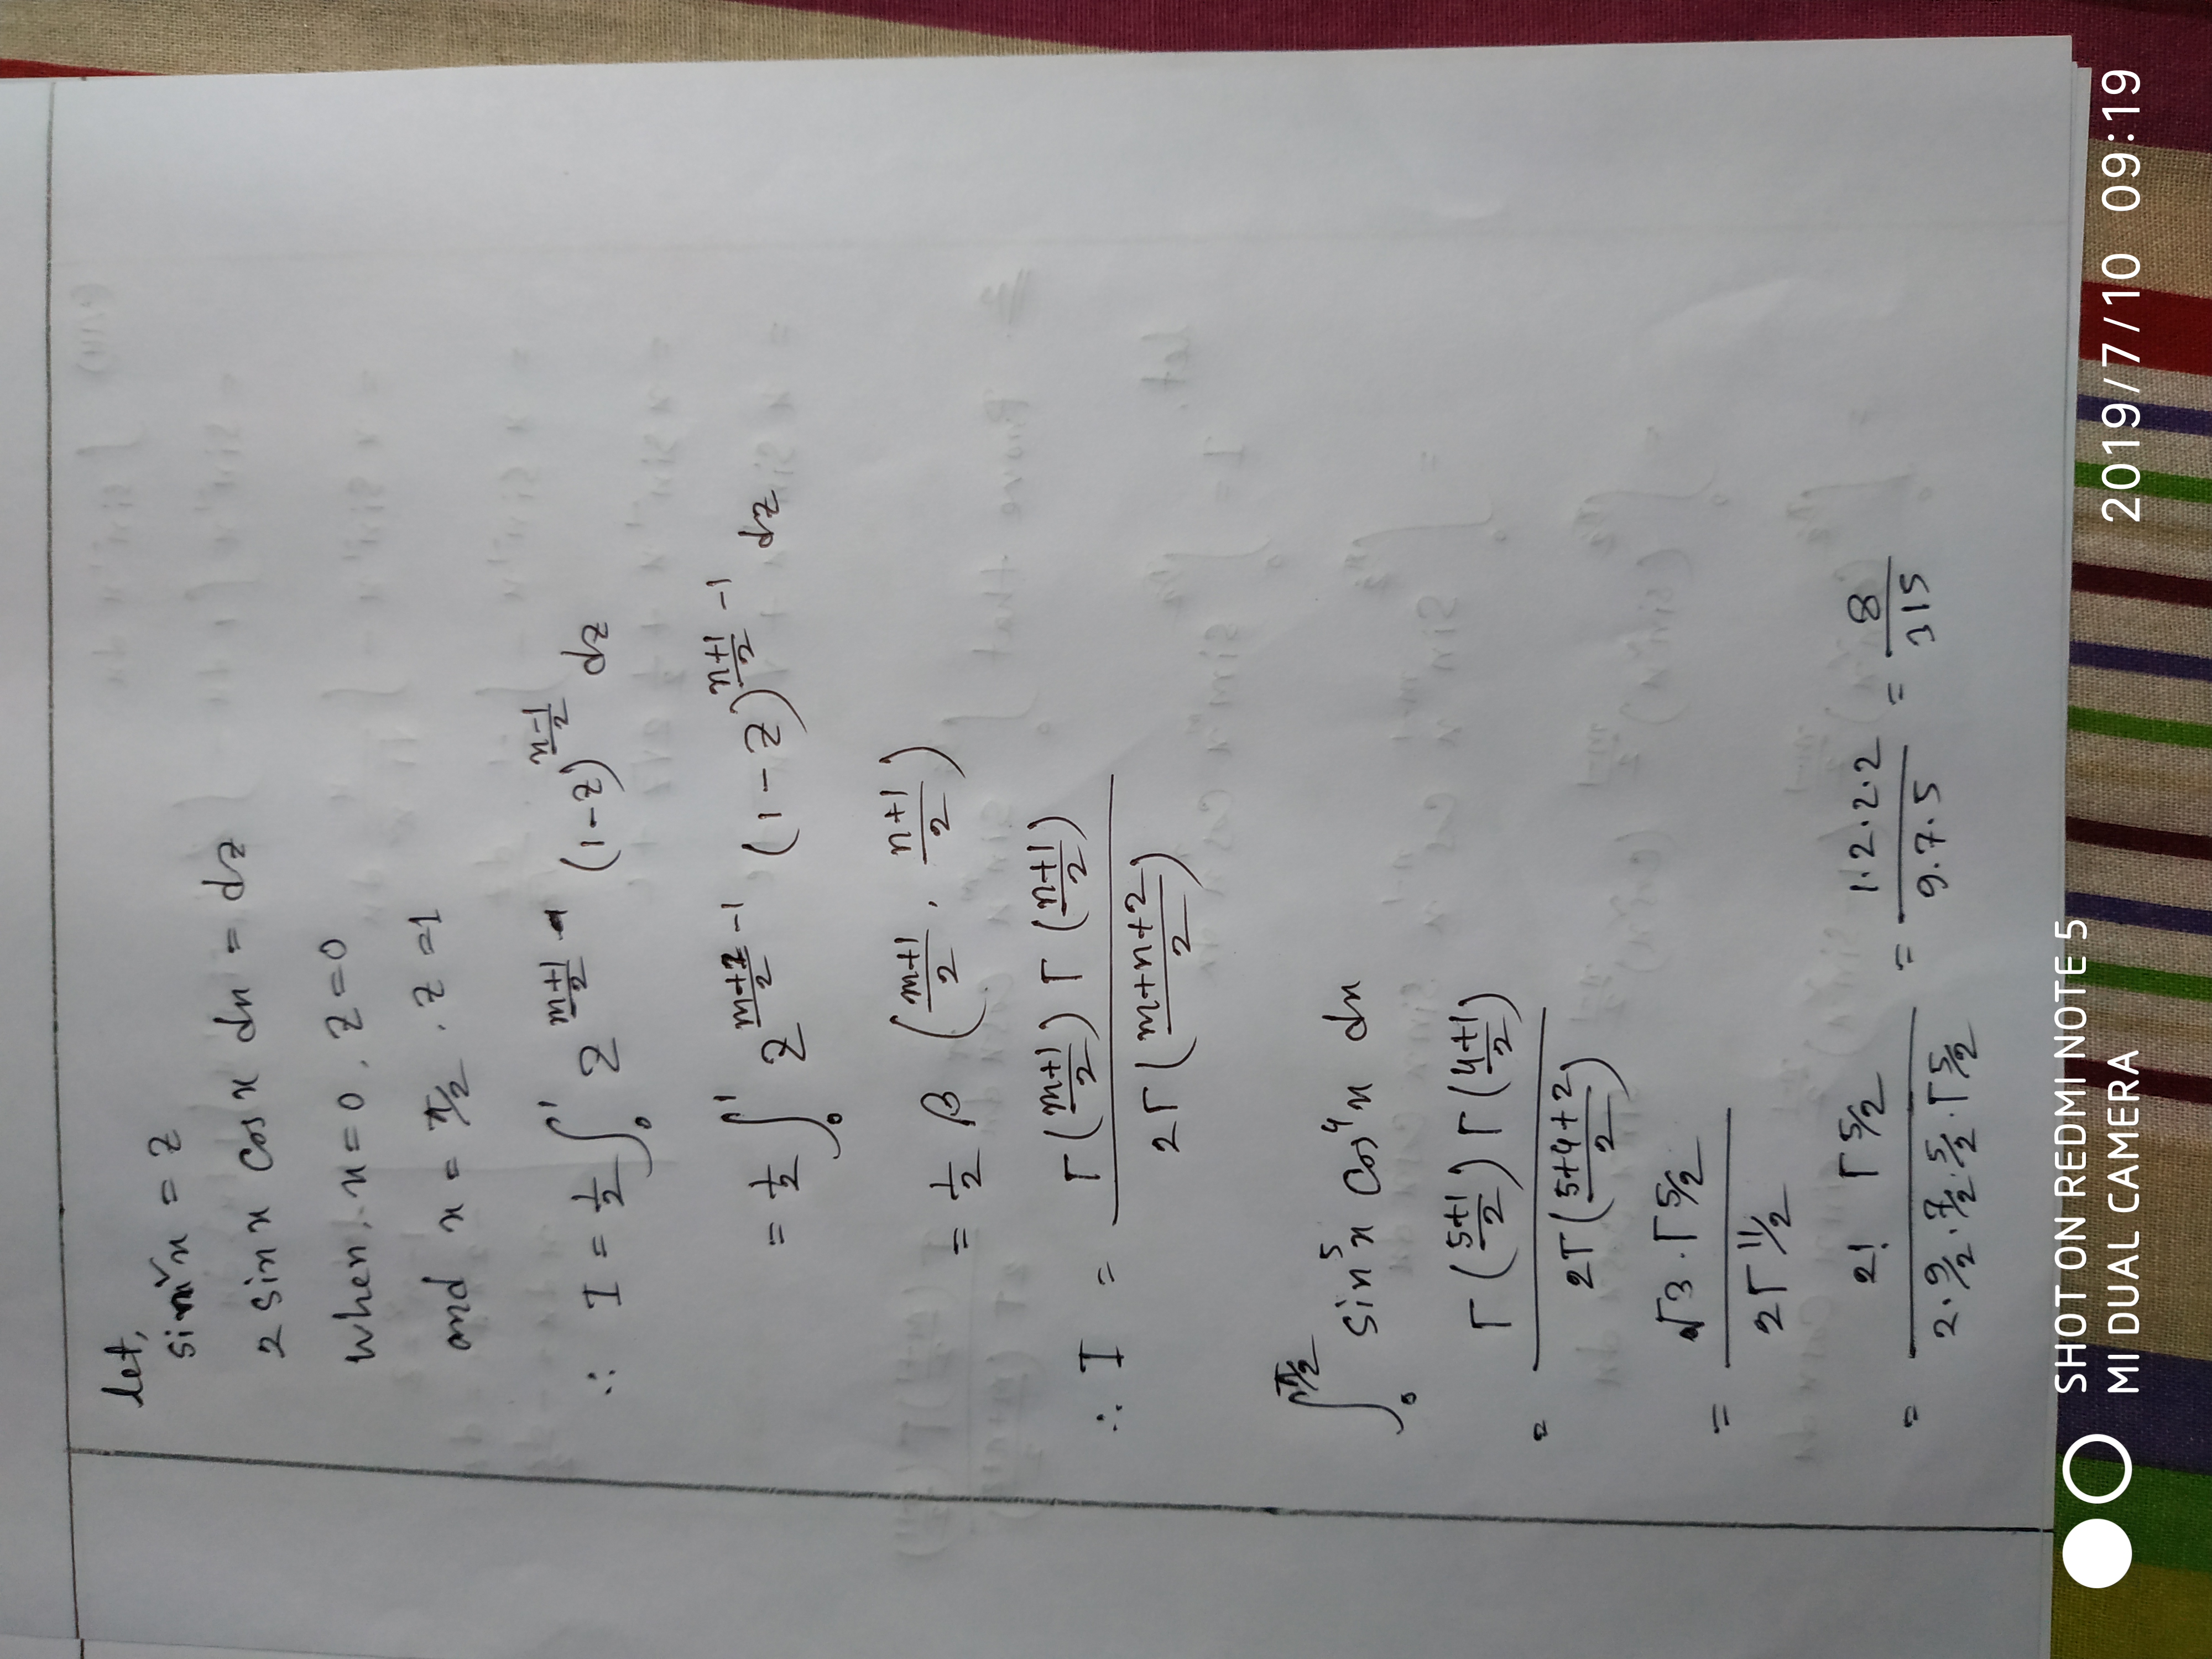 let,
sin²x = z
2 sin x cos x dx = dz
When, x = 0, z = 0
and x = π/2, z = 1
∴ I = 1/2 ∫₀¹ z^((m+1)/2) (1-z)^((n-1)/2) dz
= 1/2 ∫₀¹ z^((m+1)/2 -1) (1-z)^((n+1)/2 -1) dz
= 1/2 β ((m+1)/2, (n+1)/2)
∴ I = Γ((m+1)/2) Γ((n+1)/2) / 2Γ((m+n+2)/2)
∫₀^(π/2) sin⁵x cos⁴x dx
= Γ((5+1)/2) Γ((4+1)/2) / 2Γ((5+4+2)/2)
= Γ3 · Γ5/2 / 2Γ11/2
= 2! Γ5/2 / 2·9/2·7/2·5/2·Γ5/2 = 1·2·2·2 / 9·7·5 = 8/315
SHOT ON REDMI NOTE 5
MI DUAL CAMERA
2019/7/10 09:19